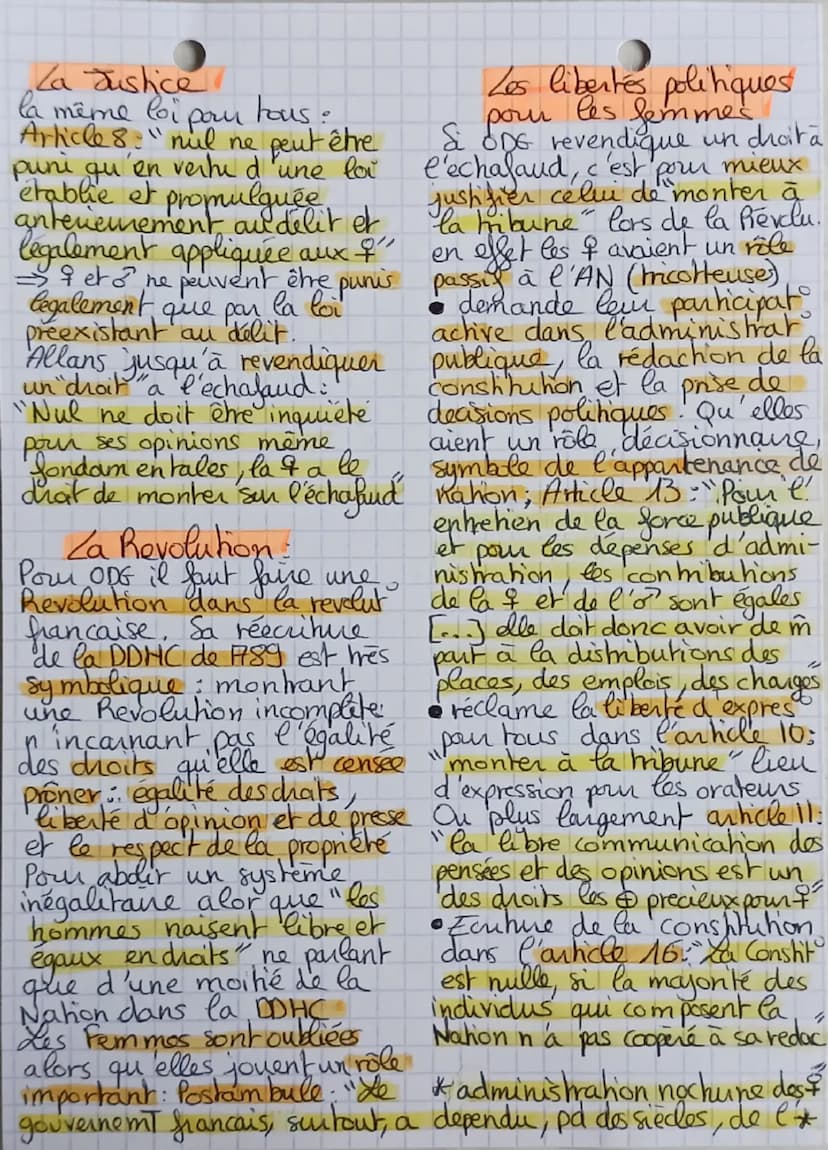 La Justice
la même loi pour tous :
Article 8 : "nul ne peut être
puni qu'en vertu d'une loi
établie et promulguée
anterieurement au délit et
légalement appliquée aux ♀"
=> ♀ et ♂ ne peuvent être punis
légalement que par la loi
préexistant au délit.
Allans jusqu'à revendiquer
un "droit" a l'échafaud :
"Nul ne doit être inquiété
pour ses opinions même
fondamentales, la ♀ a le
droit de monter sur l'échafaud"
La Revolution :
Pour ODG il faut faire une
Revolution dans la revolut°
française. Sa réécriture
de la DDHC de 1789 est très
symbolique : montrant
une Revolution incomplète
n'incarnant pas l'égalité
des droits qu'elle est censée
prôner : égalité des droits,
liberté d'opinion et de presse
et le respect de la propriété
Pour abolir un système
inégalitaire alor que "les
hommes naisent libre et
égaux en droits" ne parlant
que d'une moitié de la
Nation dans la DDHC
Les Femmes sont oubliées
alors qu'elles jouent un rôle
important : Postambule : "Le
gouvernemt français, surtout, a dependu, pd des siècles, de l'*
Les libertés politiques
pour les femmes
Si ODG revendique un droit à
l'echafaud, c'est pour mieux
justifier celui de "monter à
la tribune" lors de la Révolu.
en effet les ♀ avaient un rôle
passif à l'AN (tricotteuses)
• demande leur participat°
active dans l'administrat°
publique, la rédaction de la
constitution et la prise de
decisions politiques. Qu'elles
aient un rôle décisionnaire,
symbole de l'appartenance de
Nation ; Article 13 : "Pour l'
entretien de la force publique
et pour les dépenses d'admi-
nistration, les contributions
de la ♀ et de l'♂ sont égales
[...] elle doit donc avoir de m̂
part à la distributions des
places, des emplois, des charges"
• réclame la liberté d'expres°
pour tous dans l'article 10 :
"monter à la tribune" lieu
d'expression pour les orateurs
Ou plus largement article 11 :
"la libre communication des
pensées et des opinions est un
des droits les ⊕ precieux pour ♀"
• Ecriture de la constitution
dans l'article 16 : "La Constit°
est nulle, si la majorité des
individus qui composent la
Nation n'a pas coopéré à sa redac°"
* administration nocturne des ♀"